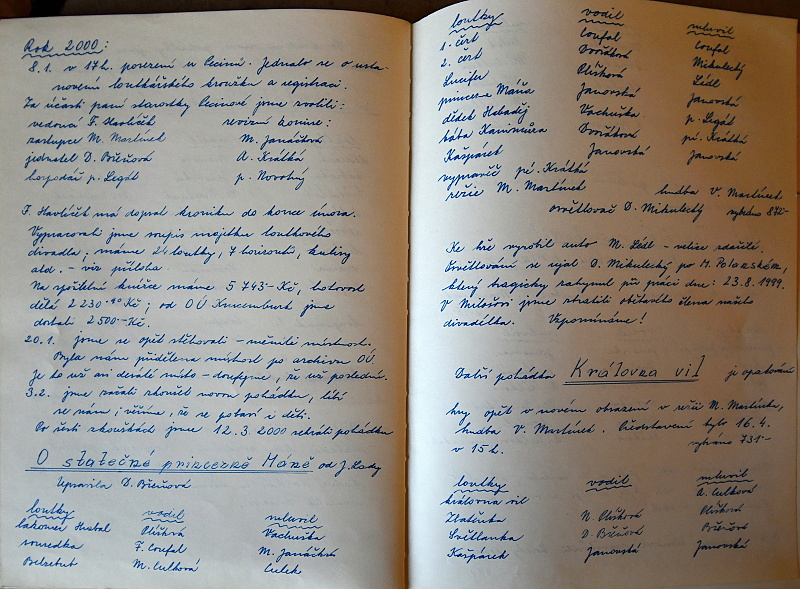 Rok 2000:
8.1. v 17h. posezení u Cecinů. Jednalo se o usta-
novení loutkářského kroužku a registraci.
Za účasti paní starostky Cecinové jsme zvolili:
vedoucí F. Havlíček revizní komise:
zástupce M. Martínek M. Janáčková
jednatel D. Břeňová A. Krátká
hospodář p. Legát p. Novotný
F. Havlíček má dopsat kroniku do konce února.
Vypracovali jsme soupis majetku loutkového
divadla; máme 24 loutky, 7 horizontů, kulisy
atd. - viz příloha.
Na spořitelní knížce máme 5 743- Kč, hotovost
dělá 2 230.40 Kč; od OÚ Kunemburk jsme
dostali 2 500- Kč.
20.1. jsme se opět stěhovali - měnili místnost.
Byla nám přidělena místnost po archivu OÚ
Je to už asi desáté místo - doufejme, že už poslední.
3.2. jsme začali zkoušet novou pohádku, líbí
se nám i věříme, že se pobaví i děti.
Po šesti zkouškách jsme 12.3.2000 sehráli pohádku
O statečné princezně Máně od J. Lady
Upravila D. Břeňová
loutky vodil mluvil
lakomec Hrabal Plíšková Vachuška
sousedka F. Coufal M. Janáčková
Belzebub M. Culková Culek
loutky vodil mluvil
1. čert Coufal Coufal
2. čert Dvořáková Mikulecký
Lucifer Plíšková Lédl
princezna Máňa Janovská Janovská
dědek Habaděj Vachuška p. Legát
bába Dvořáková pí. Krátká
Kašpárek Janovská Janovská
vypravěč pí. Krátká
režie M. Martínek hudba V. Martínek
osvětlovač D. Mikulecký vybráno 872-
Ke hře vyrobil auto M. Lédl - velice zdařilé.
Osvětlování se ujal D. Mikulecký po M. Polanském,
který tragicky zahynul při práci dne: 23.8.1999.
V Milošovi jsme ztratili obětavého člena našeho
divadélka. Vzpomínáme!
Další pohádka Královna vil je opakování
hry opět v novém obsazení v režii M. Martínka,
hudba V. Martínek. Představení bylo 16.4.
v 15 h. vybráno 731-
loutky vodil mluvil
královna vil A. Culková
Zlatěnka N. Plíšková Plíšková
Světlanka D. Břeňová Břeňová
Kašpárek Janovská Janovská